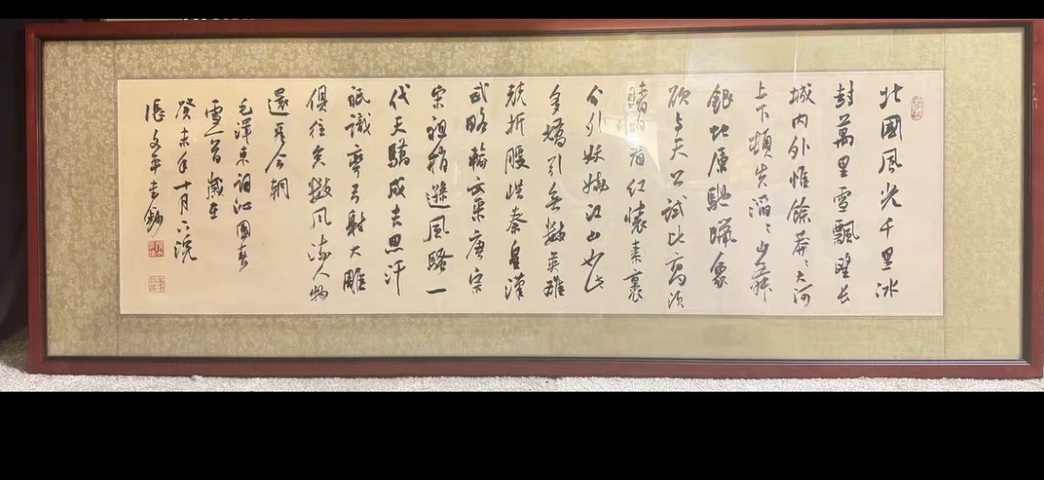 北國風光千里冰
封萬里雪飄望長
城内外惟餘莽々大河
上下頓失滔々山舞
銀蛇原馳蠟象
欲与天公試比高須
晴日看红懷素裹
分外妖嬈江山如此
多嬌引無數英雄
競折腰惜秦皇漢
武略輸文采唐宗
宋祖稍遜風騷一
代天驕成吉思汗
祗識彎弓射大雕
俱往矣數風流人物
還看今朝
毛澤東詞沁園春
雪一首歲在
癸未年十月下浣
張文年書